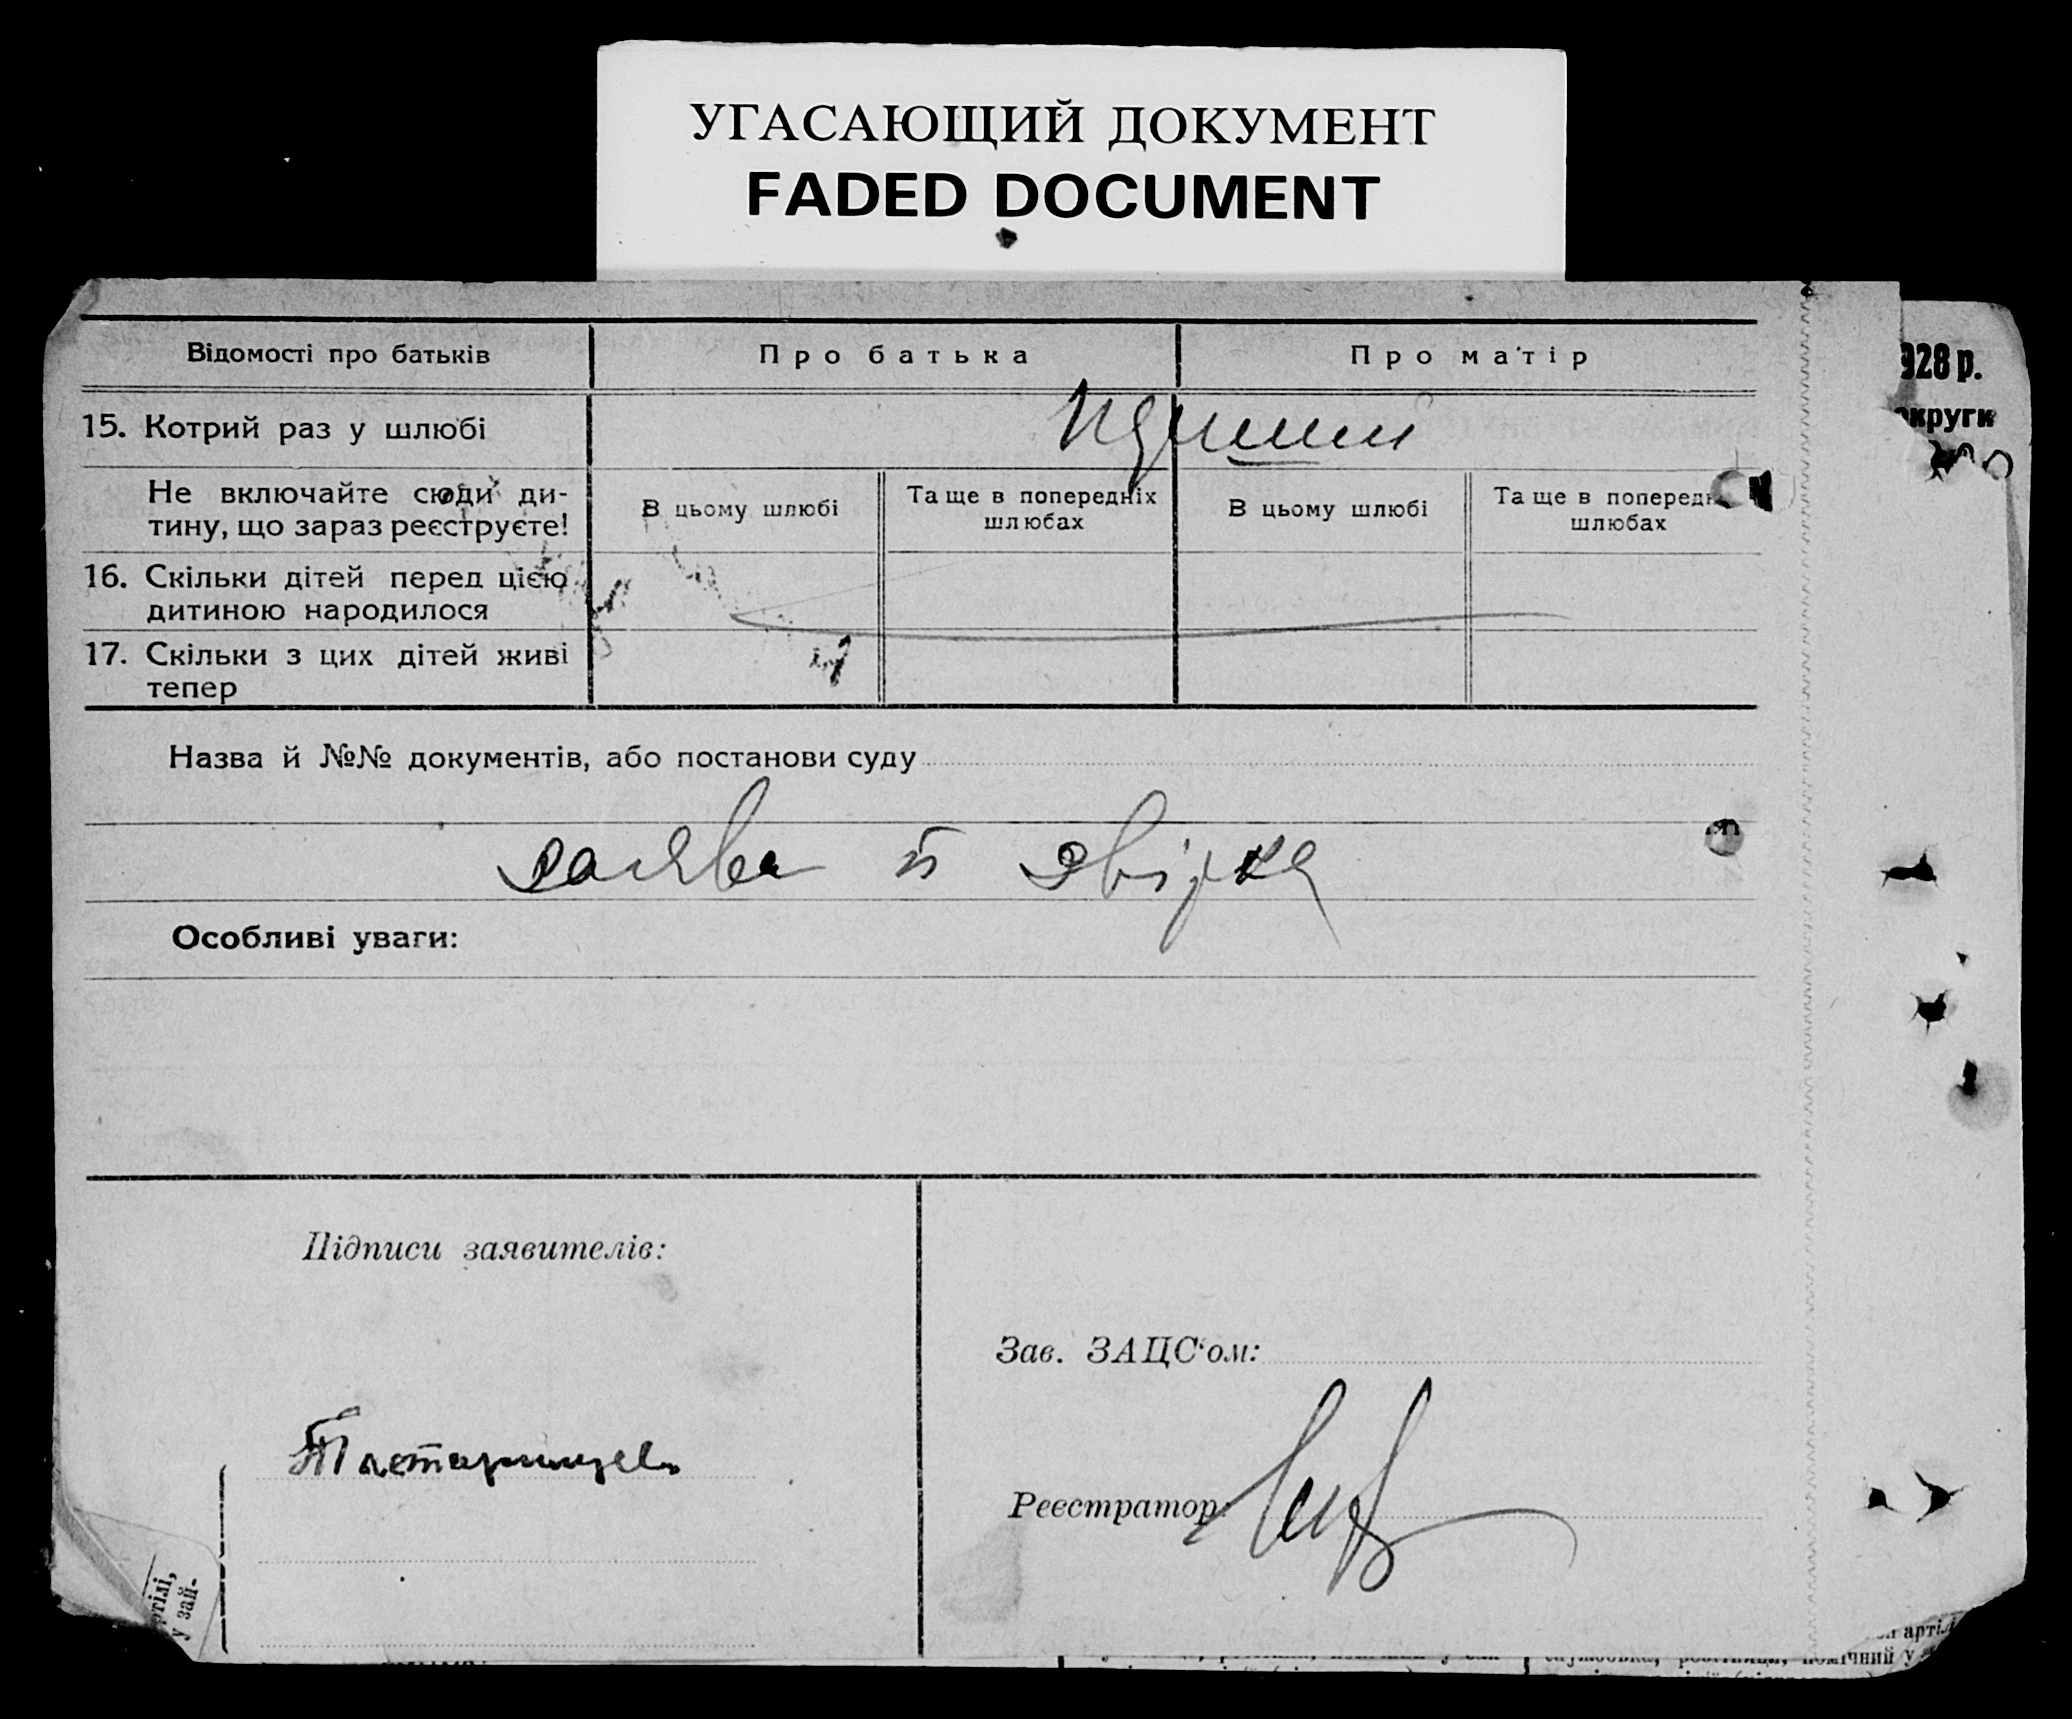 УГАСАЮЩИЙ ДОКУМЕНТ
FADED DOCUMENT
Відомості про батьків
Про батька
Про матір
928 р.
округи
15. Котрий раз у шлюбі
Не включайте сюди ди-
тину, що зараз реєструєте!
В цьому шлюбі
Та ще в попередніх
шлюбах
В цьому шлюбі
Та ще в поперед
шлюбах
16. Скільки дітей перед цією
дитиною народилося
17. Скільки з цих дітей живі
тепер
Назва й №№ документів, або постанови суду
заява й звірка
Особливі уваги:
Підписи заявителів:
Зав. ЗАЦС'ом:
Реєстратор:
ртілі,
у зай-
артіл